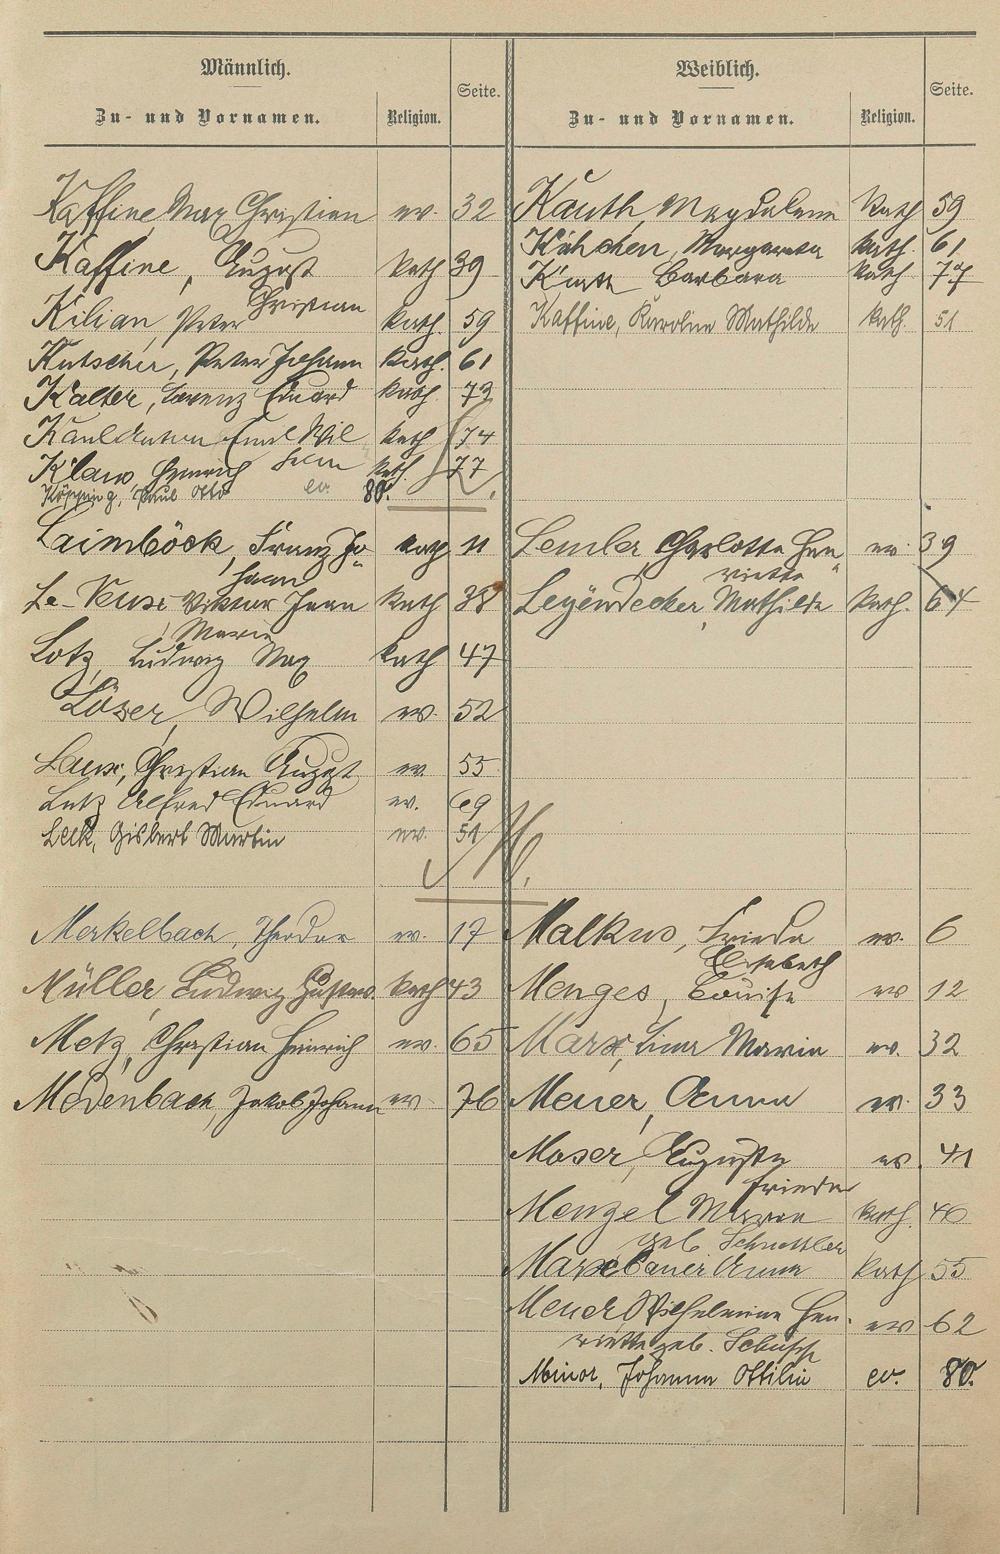 Männlich.
Zu- und Vornamen.
Religion.
Seite.
Kaffine, Max Christian ev. 32
Kaffine, August kath 39
Christian
Kilian, Peter kath. 59
Kutscher, Peter Johann kath. 61
Kalter, Lorenz Eduard kath. 73
Kaul Anton Emil Wil kath 74
helm
Klaus, Heinrich kath. 77
Köpping, Paul Otto ev. 80.
L.
Laimböck, Franz Jo- kath 11
hann
Viktor Jean kath 38
Marie
Lotz, Ludwig Max kath 47
Löser, Wilhelm ev. 52
Laux, Christian August ev. 55
Lutz Alfred Eduard ev. 69
Leck, Gisbert Martin ev. 51
M.
Merkelbach, Theodor ev. 17
Müller, Ludwig Gustav. kath 43
Metz, Christian Heinrich ev. 65
Medenbach, Jakob Johann ev 76
Weiblich.
Zu- und Vornamen.
Religion.
Seite.
Kauth, Magdalena kath 59
Margareta kath. 61
Barbara kath. 77
Kaffine, Karoline Mathilde kath. 51
Lemler, Charlotte Hen ev. 39
riette
Leyendecker, Mathilde kath. 64
Malkus, Frieda ev. 6
Elisabeth
Menges, Louise ev 12
Marx, Lina Maria ev. 32
Meuer, Anna ev. 33
Moser, Auguste ev. 41
Frieda
Mengel Maria kath. 46
geb.
Anna kath 55
Meuer Wilhelmine Hen- ev 62
riette geb.
Minor, Johanna Ottilie ev. 80.